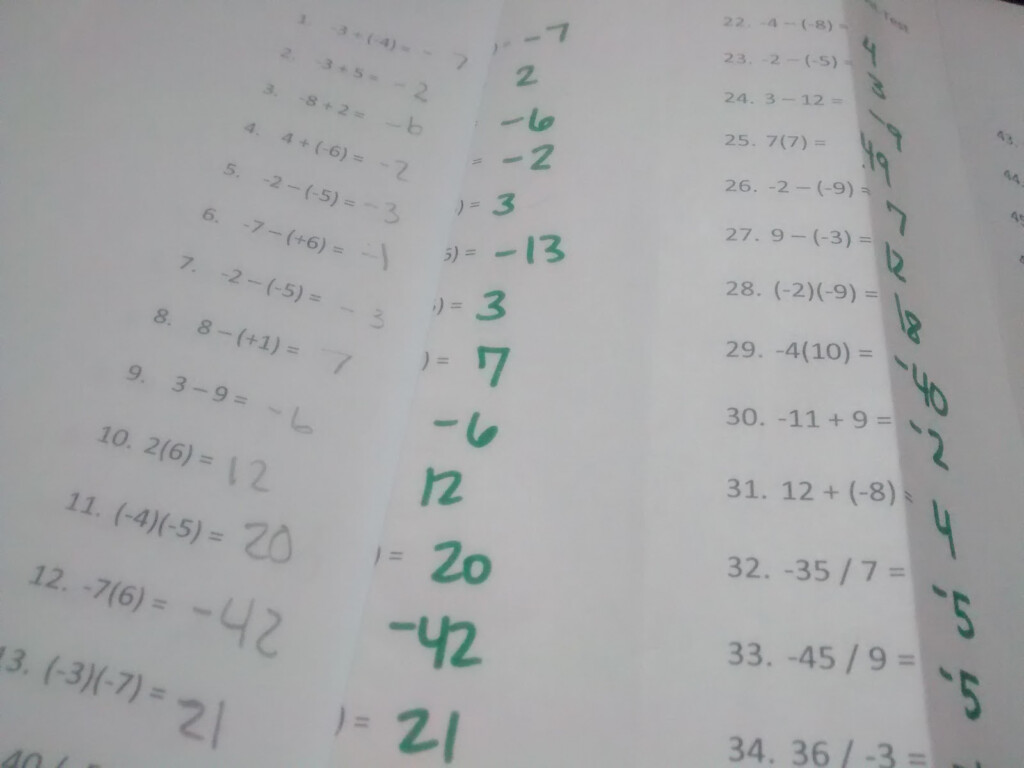 1. -3 + (-4) = - 7
2. -3 + 5 = - 2
3. -8 + 2 = - 6
4. 4 + (-6) = - 2
5. -2 – (-5) = - 3
6. -7 – (+6) = -1
7. -2 – (-5) = - 3
8. 8 – (+1) = 7
9. 3 – 9 = - 6
10. 2(6) = 12
11. (-4)(-5) = 20
12. -7(6) = -42
13. (-3)(-7) = 21
) = -7
2
-6
= -2
) = 3
) = -13
) = 3
) = 7
-6
12
) = 20
-42
) = 21
Test
22. -4 – (-8) = 4
23. -2 – (-5) = 3
24. 3 – 12 = -9
25. 7(7) = 49
26. -2 – (-9) = 7
27. 9 – (-3) = 12
28. (-2)(-9) = 18
29. -4(10) = -40
30. -11 + 9 = -2
31. 12 + (-8) = 4
32. -35 / 7 = -5
33. -45 / 9 = -5
34. 36 / -3 =
43.
44.